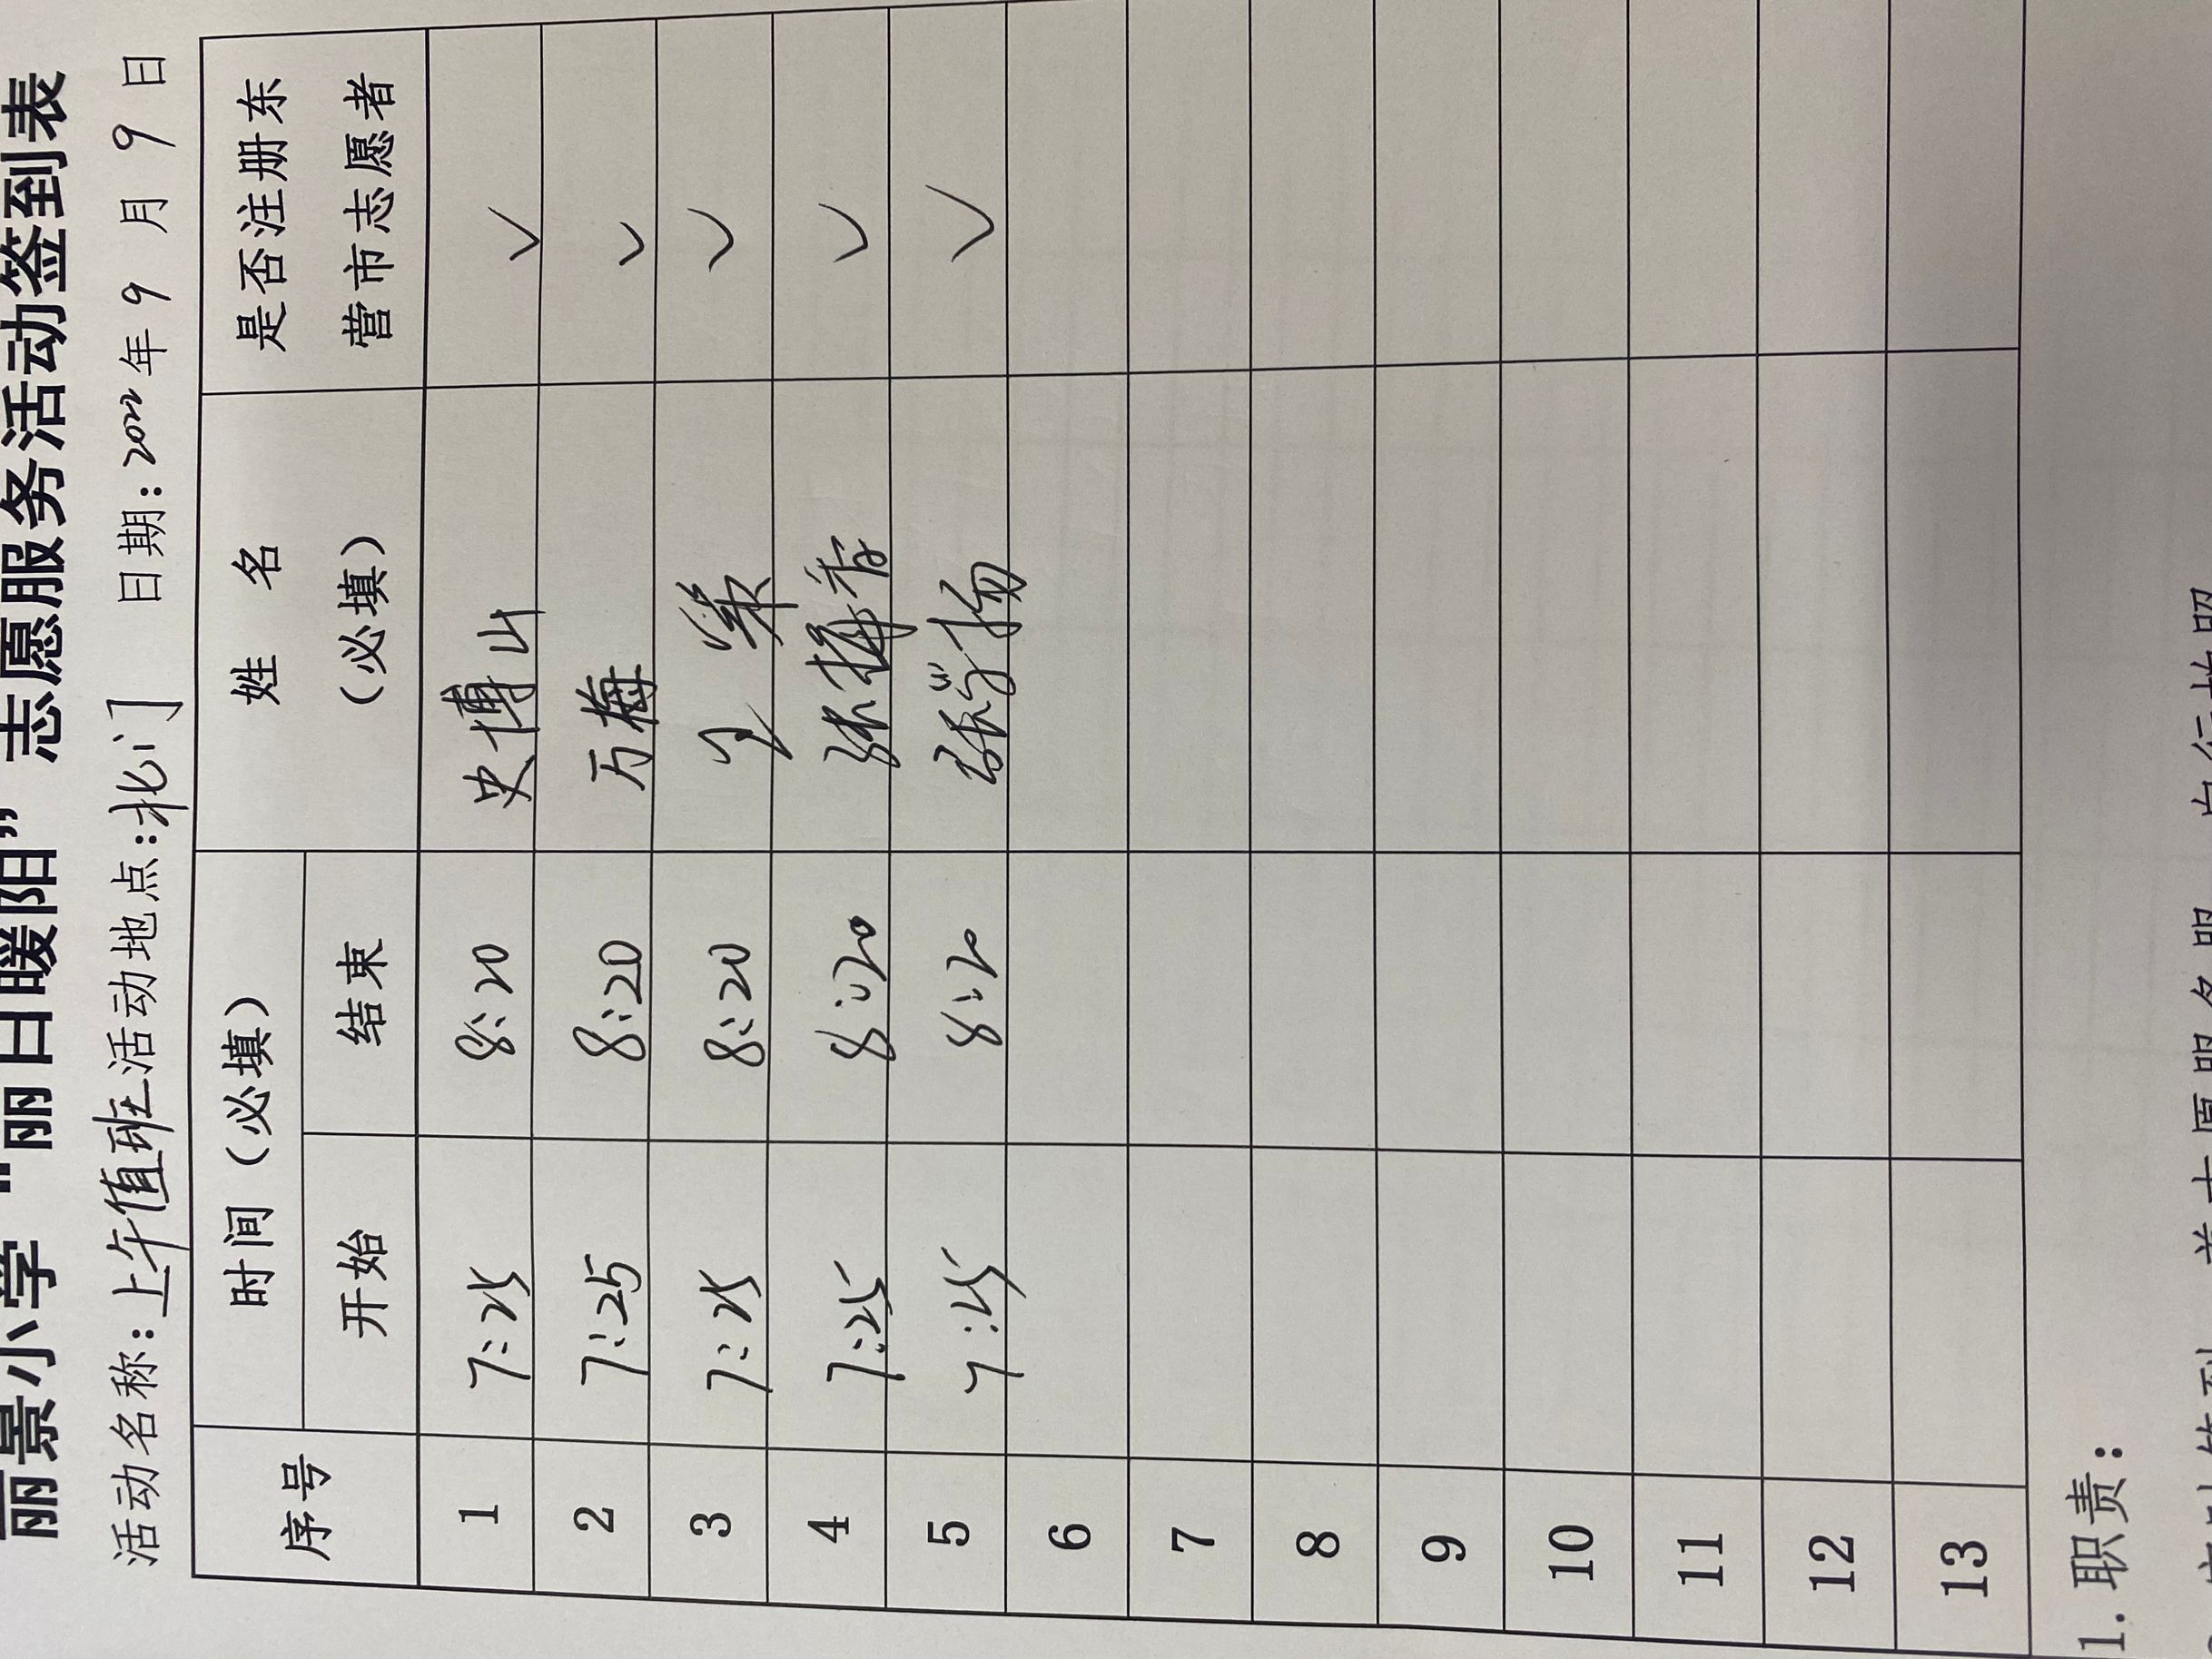 丽景小学“丽日暖阳”志愿服务活动签到表
活动名称：上午值班 活动地点：北门 日期：2022年 9 月 9 日
序号 时间（必填） 姓 名（必填） 是否注册东营市志愿者
开始 结束
1 7:25 8:20 史博山 ✓
2 7:25 8:20 万梅 ✓
3 7:25 8:20 ✓
4 7:25 8:20 张 ✓
5 7:25 8:20 张学扬 ✓
6
7
8
9
10
11
12
13
1. 职责：